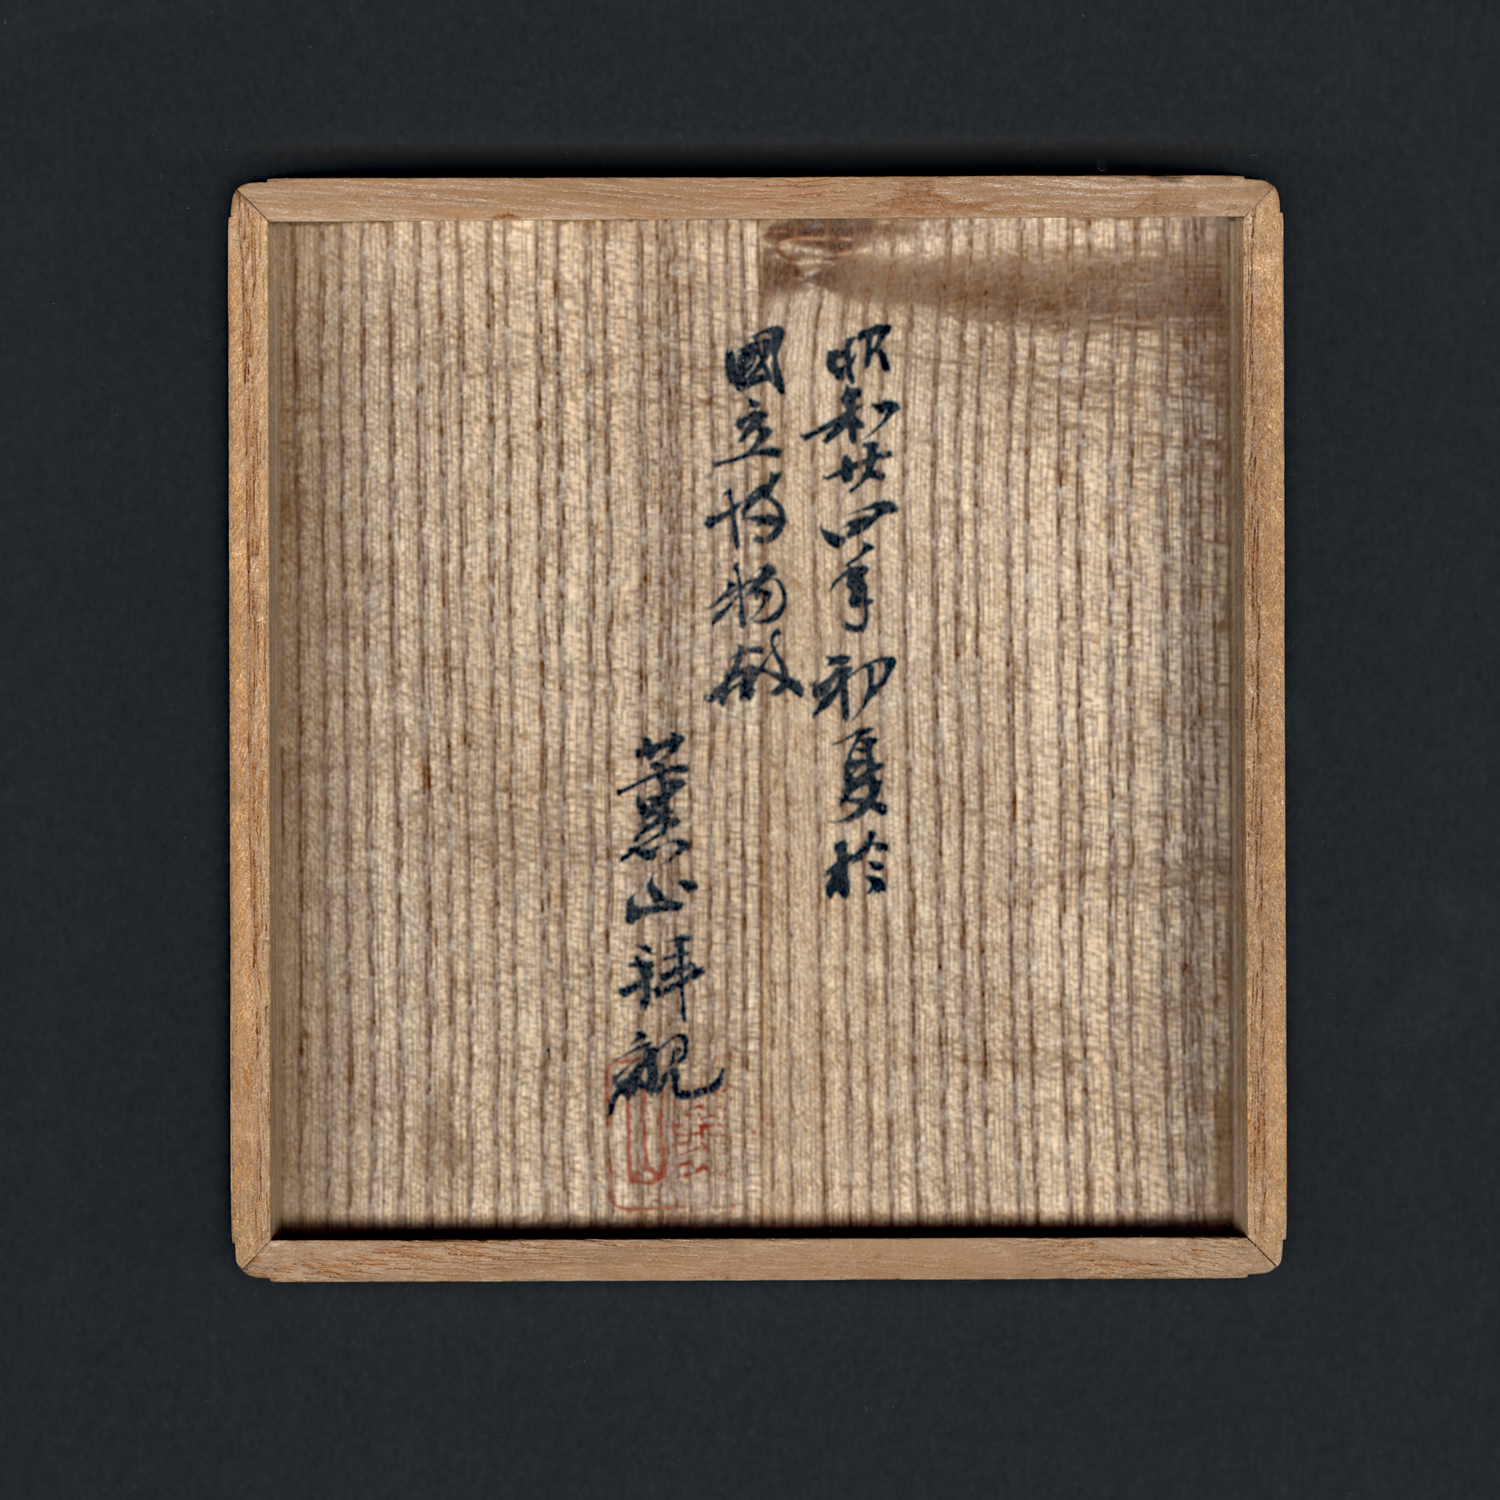 昭和廿四年初夏於
國立博物館
薫山拝観